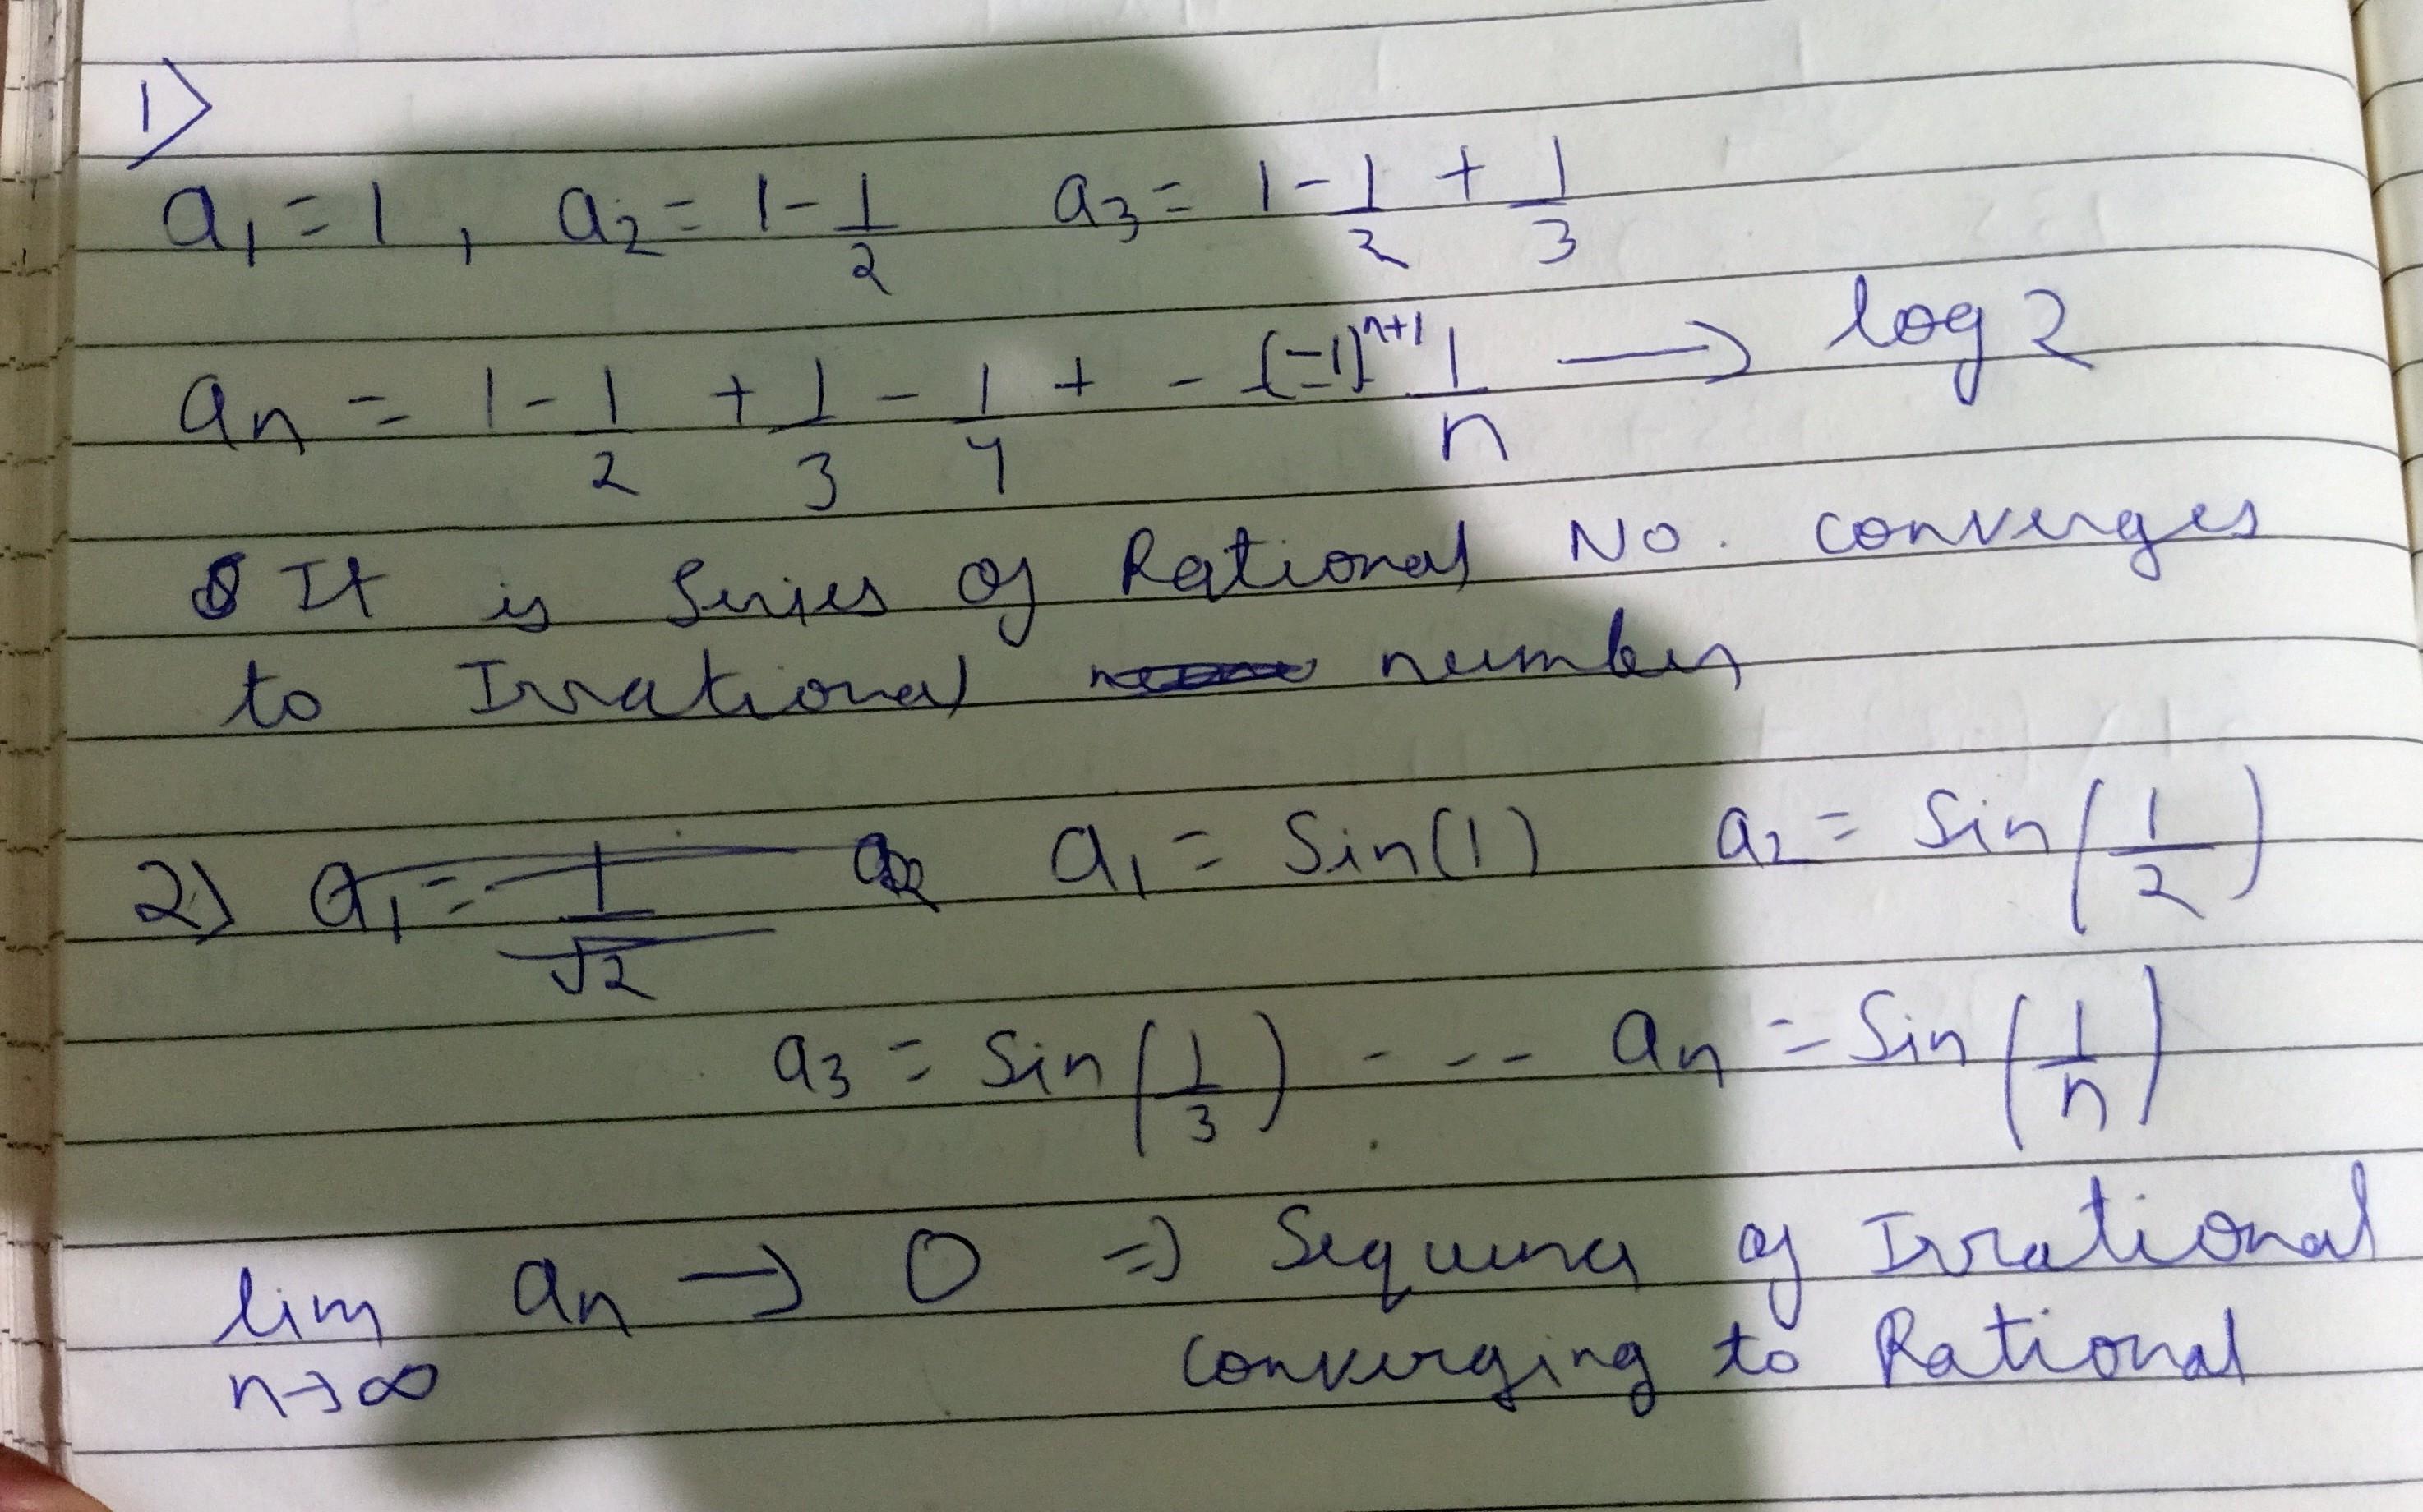 1)
a₁ = 1 , a₂ = 1 - 1/2 a₃ = 1 - 1/2 + 1/3
aₙ = 1 - 1/2 + 1/3 - 1/4 + - - (-1)ⁿ⁺¹ 1/n → log 2
It is Series of Rational No. converges
to Irrational number
2) a₁ = 1/√2 a₁ = Sin(1) a₂ = Sin(1/2)
a₃ = Sin(1/3) - - - aₙ = Sin(1/n)
lim n→∞ aₙ → 0 ⇒ Sequence of Irrational
converging to Rational